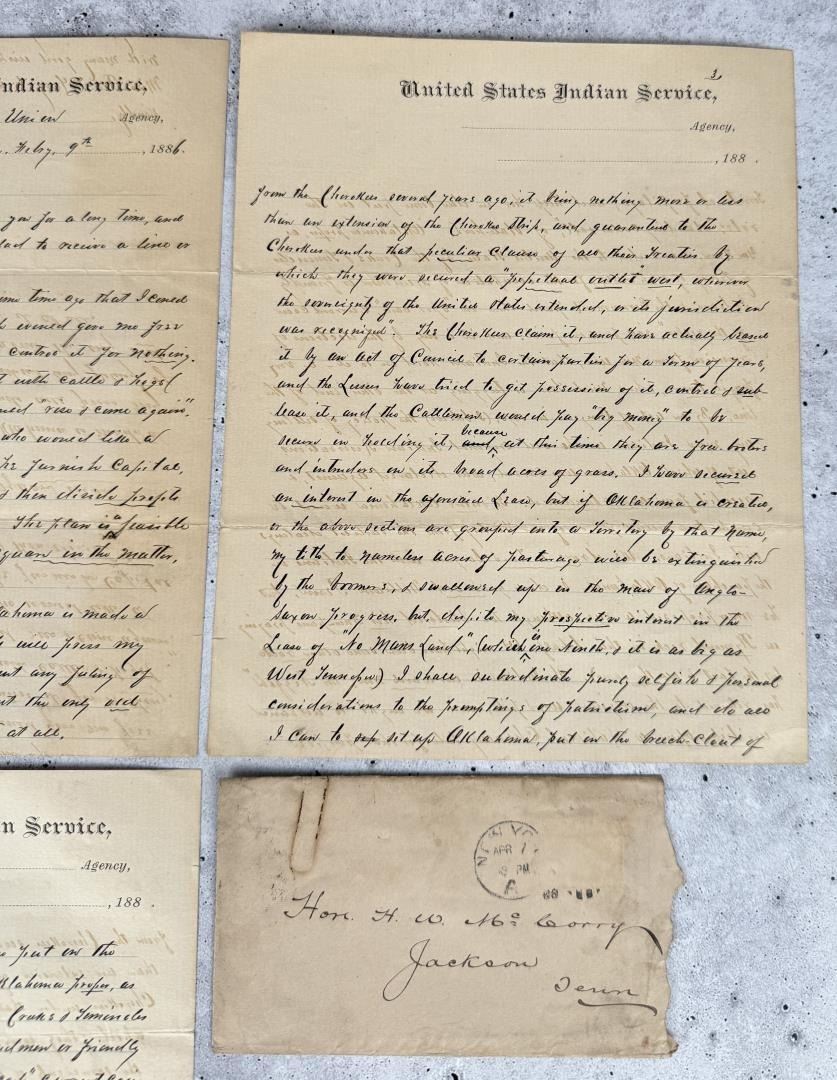 ndian Service,
Union Agency,
Feby, 9th, 1886.
you for a long time, and
lad to receive a line or
me time ago that I coned
would give me free
control it for nothing.
with cattle & hogs
"rise & come again".
who would like a
he furnish Capital,
& then divide profits
The plan is a feasible
square in the matter.
lahoma is made a
will press my
any feeling of
the only
at all.
3
United States Indian Service,
Agency,
, 188 .
from the Cherokees several years ago, it being nothing more or less
than an extension of the Cherokee Strip, and guaranteed to the
Cherokees under that peculiar clause of all their Treaties by
which they were secured a "perpetual outlet west, wherever
the sovereignty of the United States extended, or its jurisdiction
was recognized". The Cherokees claim it, and have actually leased
it by an act of Council to certain parties for a term of years,
and the Lessees have tried to get possession of it, control & sub-
lease it, and the Cattlemen would pay "big money" to be
secure in holding it, and, because at this time they are free-booters
and intruders on its broad acres of grass. I have secured
an interest in the aforesaid Lease, but if Oklahoma is created,
or the above sections are grouped into a Territory by that name,
my title to nameless acres of pasturage will be extinguished
by the boomers, & swallowed up in the maw of Anglo-
Saxon progress. but, despite my prospective interest in the
Lease of "No Mans Land", (which is one Ninth, & it is as big as
West Tennessee) I shall subordinate purely selfish & personal
considerations to the promptings of patriotism, and do all
I can to set up Oklahoma, put on the breech-clout of
n Service,
Agency,
, 188 .
put on the
klahoma proper, as
Creeks & Seminoles
dmen or friendly
NEW YO
APR 7
PM
Hon. H. W. McCorry
Jackson
Tenn